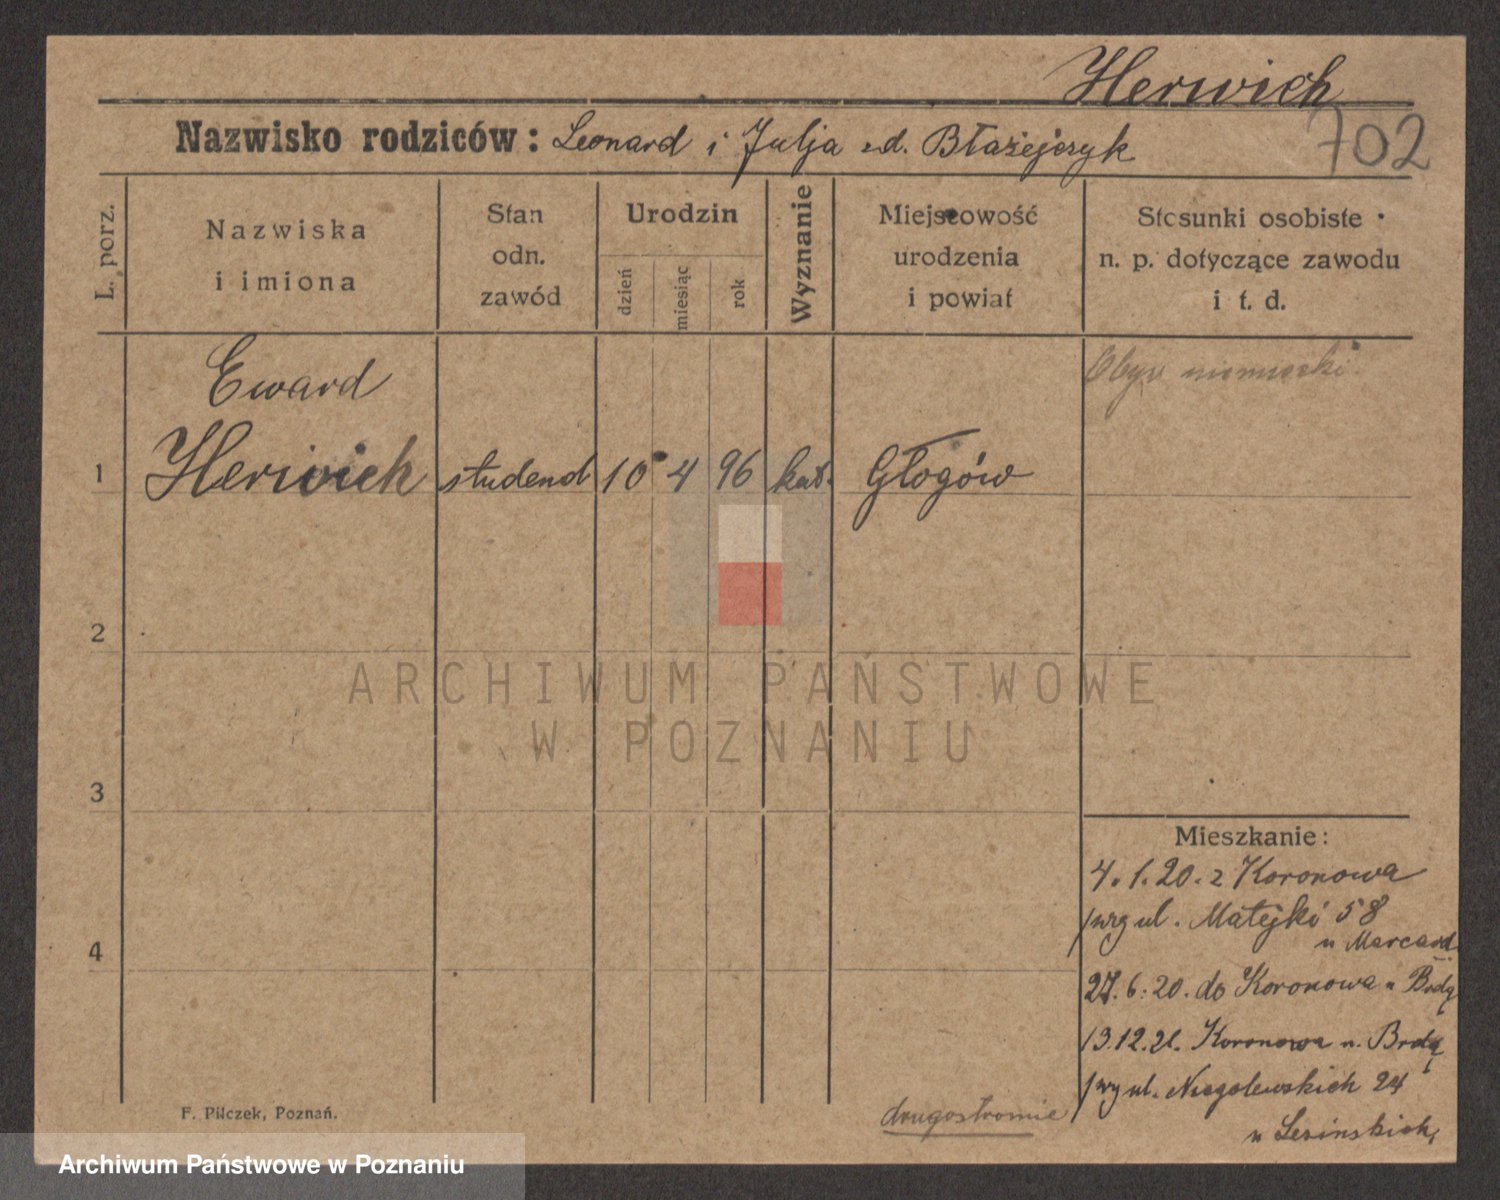 Herwich
702
Nazwisko rodziców: Leonard i Julja zd. Błażejczyk
L. porz.
Nazwiska
i imiona
Stan
odn.
zawód
Urodzin
dzień
miesiąc
rok
Wyznanie
Miejscowość
urodzenia
i powiat
Stosunki osobiste
n. p. dotyczące zawodu
i t. d.
Eward
1 Herwich studend 10 4 96 kat. Głogów
Obyw niemiecki.
2
3
4
Mieszkanie:
4.1.20. z Koronowa
ul. Matejki 58
u Marcard
27.6.20. do Koronowa n Brdą
13.12.21. Koronowa n. Brdą
ul. Niegolewskich 24
drugostronnie
F. Pilczek, Poznań.
ARCHIWUM PAŃSTWOWE
W POZNANIU
Archiwum Państwowe w Poznaniu